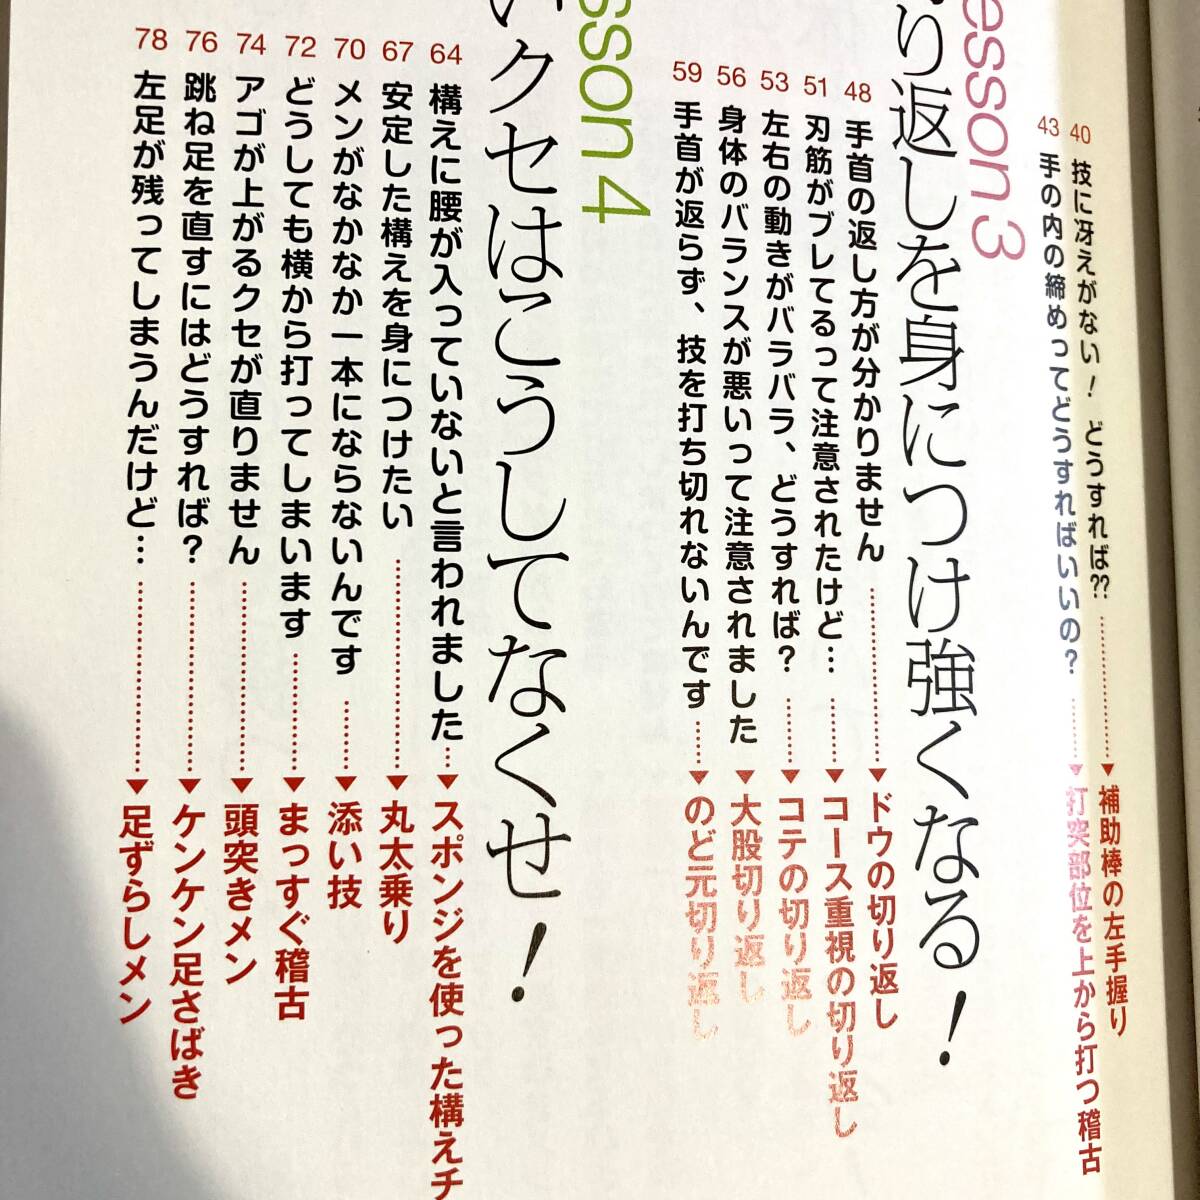 40 技に冴えがない！ どうすれば??……▼補助棒の左手握り
43 手の内の締めってどうすればいいの？……▼打突部位を上から打つ稽古
esson 3
り返しを身につけ強くなる！
48 手首の返し方が分かりません……▼ドウの切り返し
51 刃筋がブレてるって注意されたけど………▼コース重視の切り返し
53 左右の動きがバラバラ、どうすれば？……▼コテの切り返し
56 身体のバランスが悪いって注意されました……▼大股切り返し
59 手首が返らず、技を打ち切れないんです……▼のど元切り返し
sson 4
いクセはこうしてなくせ！
64 構えに腰が入っていないと言われました……▼スポンジを使った構えチ
67 安定した構えを身につけたい……▼丸太乗り
70 メンがなかなか一本にならないんです……▼添い技
72 どうしても横から打ってしまいます……▼まっすぐ稽古
74 アゴが上がるクセが直りません……▼頭突きメン
76 跳ね足を直すにはどうすれば？……▼ケンケン足さばき
78 左足が残ってしまうんだけど………▼足ずらしメン